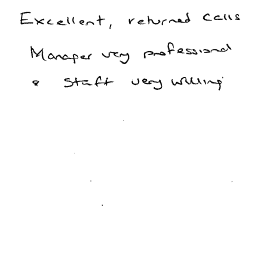 Excellent, returned calls
Manager very professional
& Staff very willing